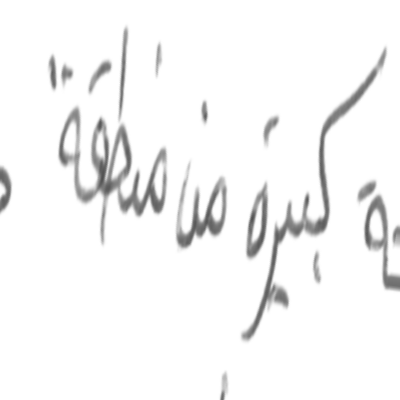 كبيرة من منطقة